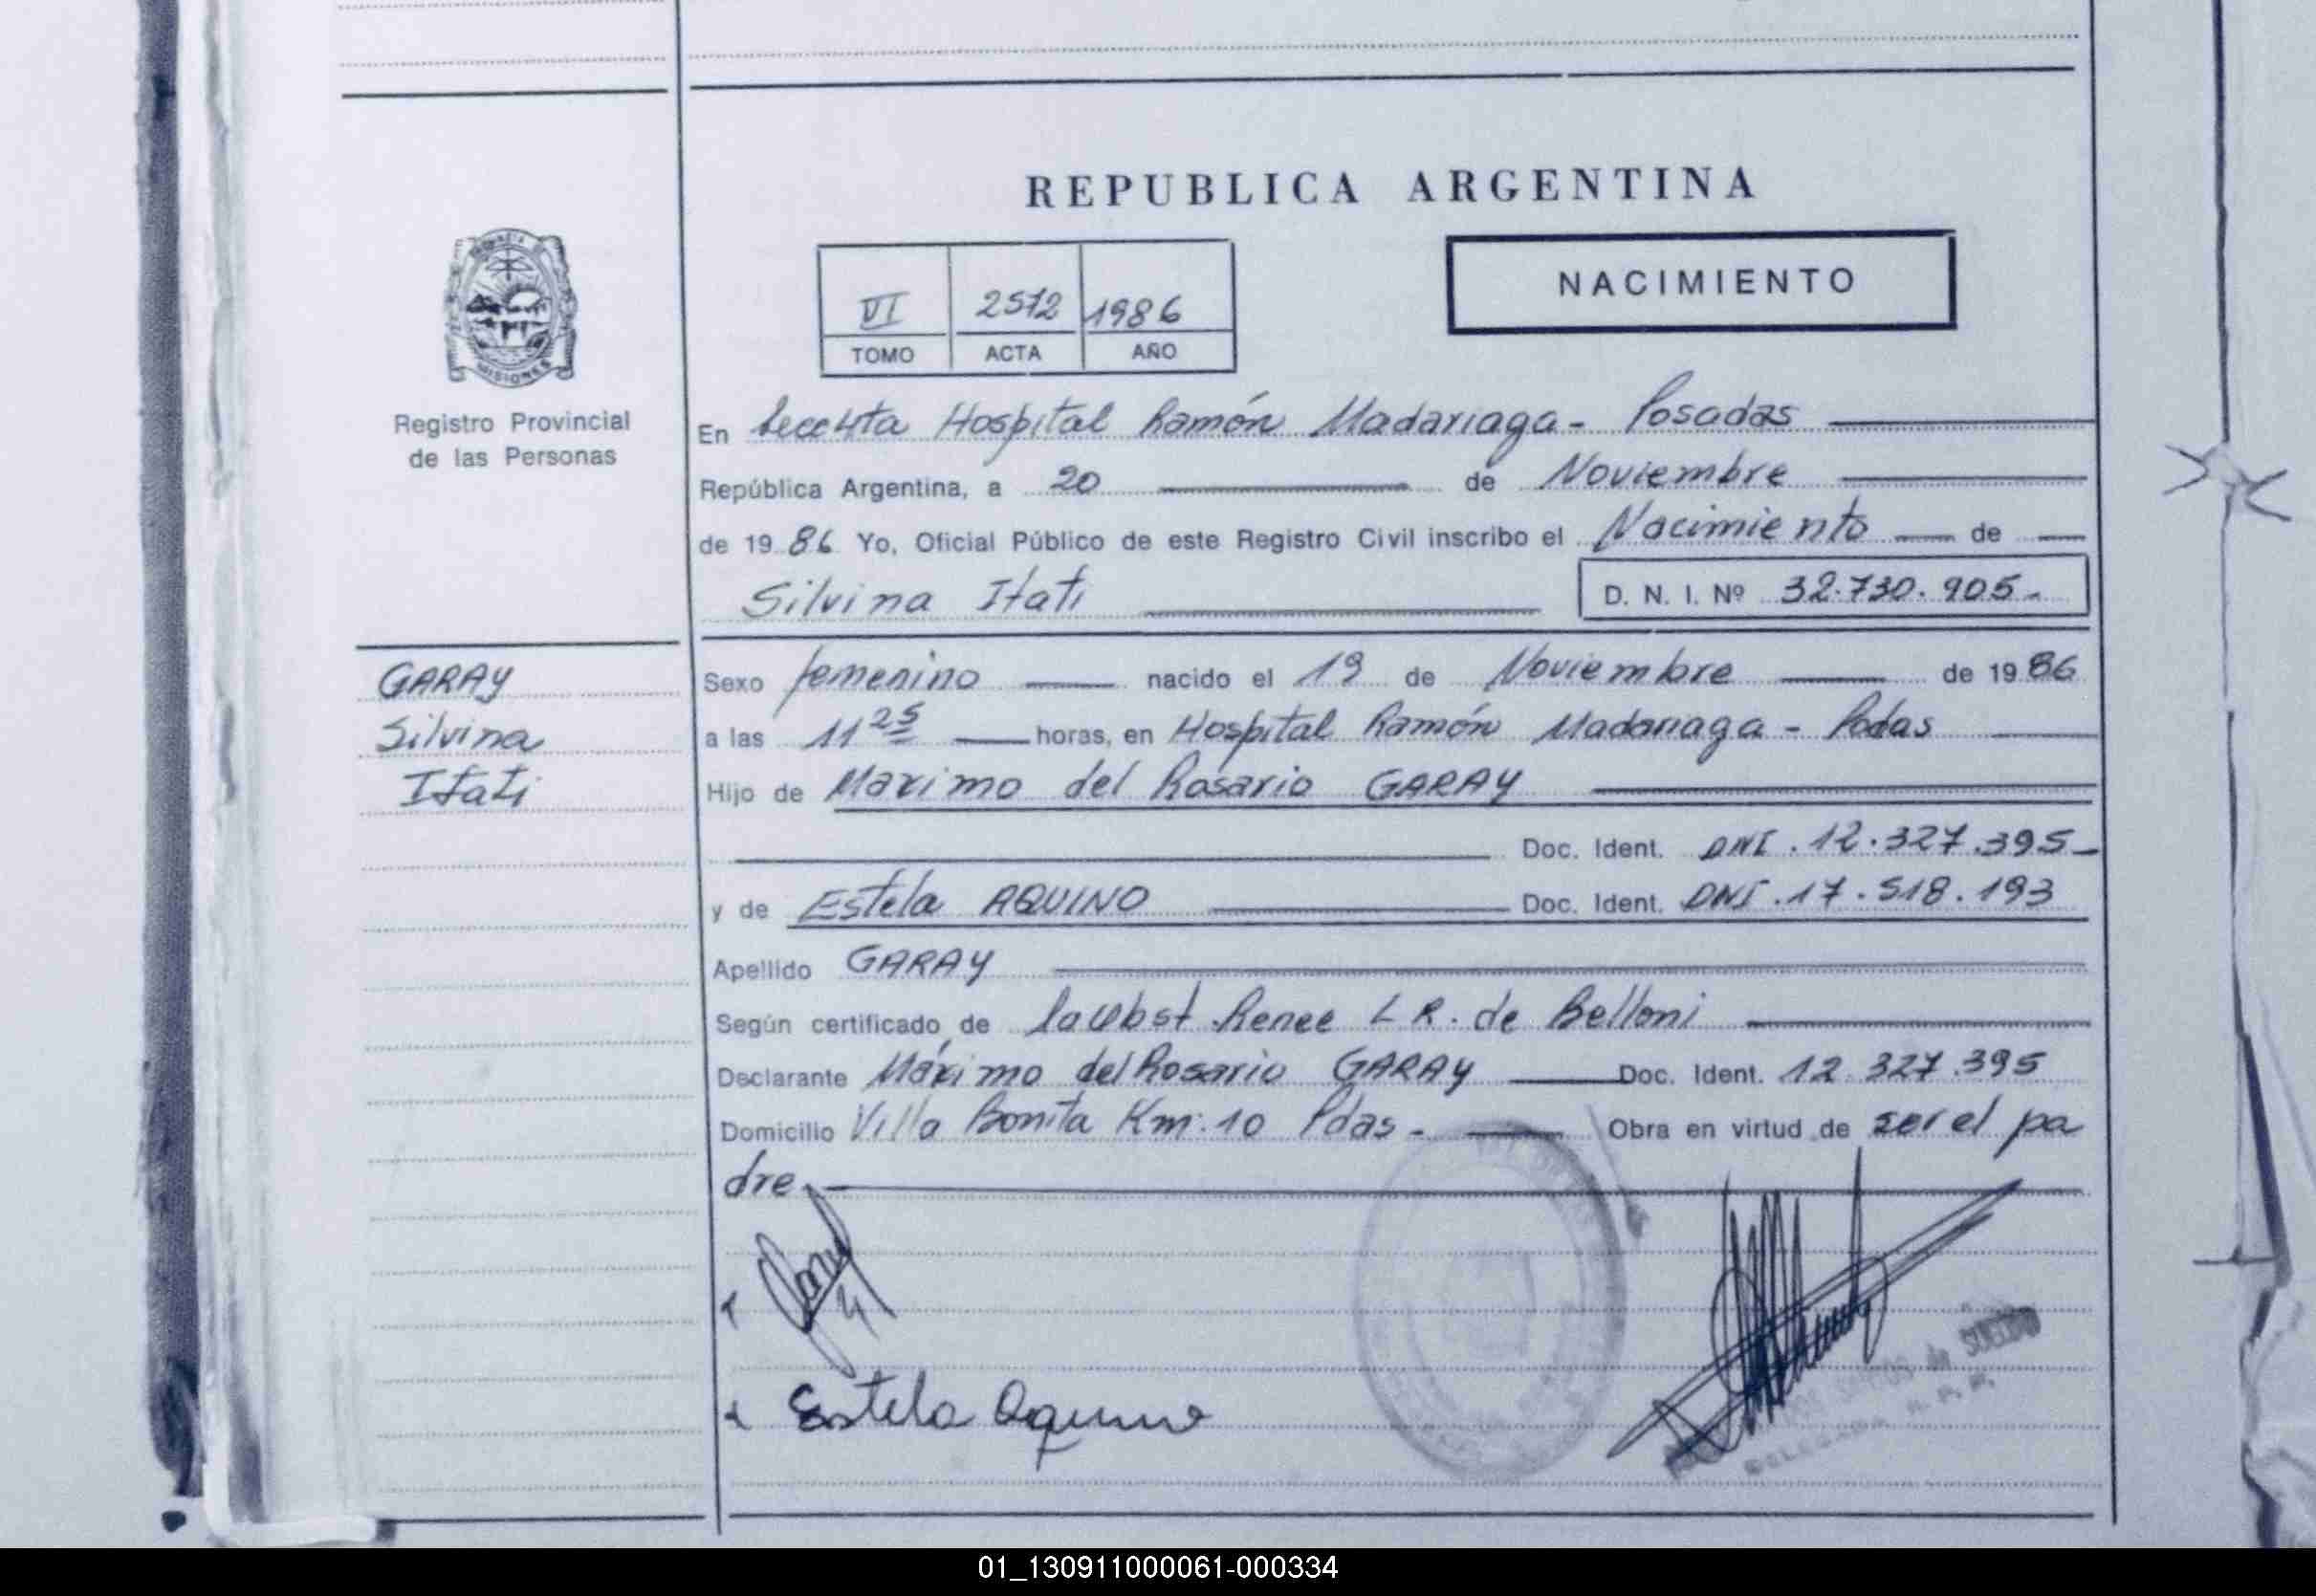 REPUBLICA ARGENTINA
NACIMIENTO
VI 2572 1986
TOMO ACTA AÑO
MISIONES
Registro Provincial
de las Personas
En Secc 4ta Hospital Ramón Madariaga - Posadas
República Argentina, a 20 de Noviembre
de 1986 Yo, Oficial Público de este Registro Civil inscribo el Nacimiento de
Silvina Itati D. N. I. Nº 32.730.905.-
GARAY
Silvina
Itati
Sexo femenino nacido el 19 de Noviembre de 1986
a las 11 25 horas, en Hospital Ramón Madariaga - Podas
Hijo de Maximo del Rosario GARAY
Doc. Ident. DNI. 12.327.395-
y de Estela AQUINO Doc. Ident. DNI. 17.518.193
Apellido GARAY
Según certificado de Renee L R. de Belloni
Declarante Máximo del Rosario GARAY Doc. Ident. 12.327.395
Domicilio Villa Bonita Km: 10 Pdas - Obra en virtud de ser el pa
dre
Garay
Estela Aquino
01_130911000061-000334